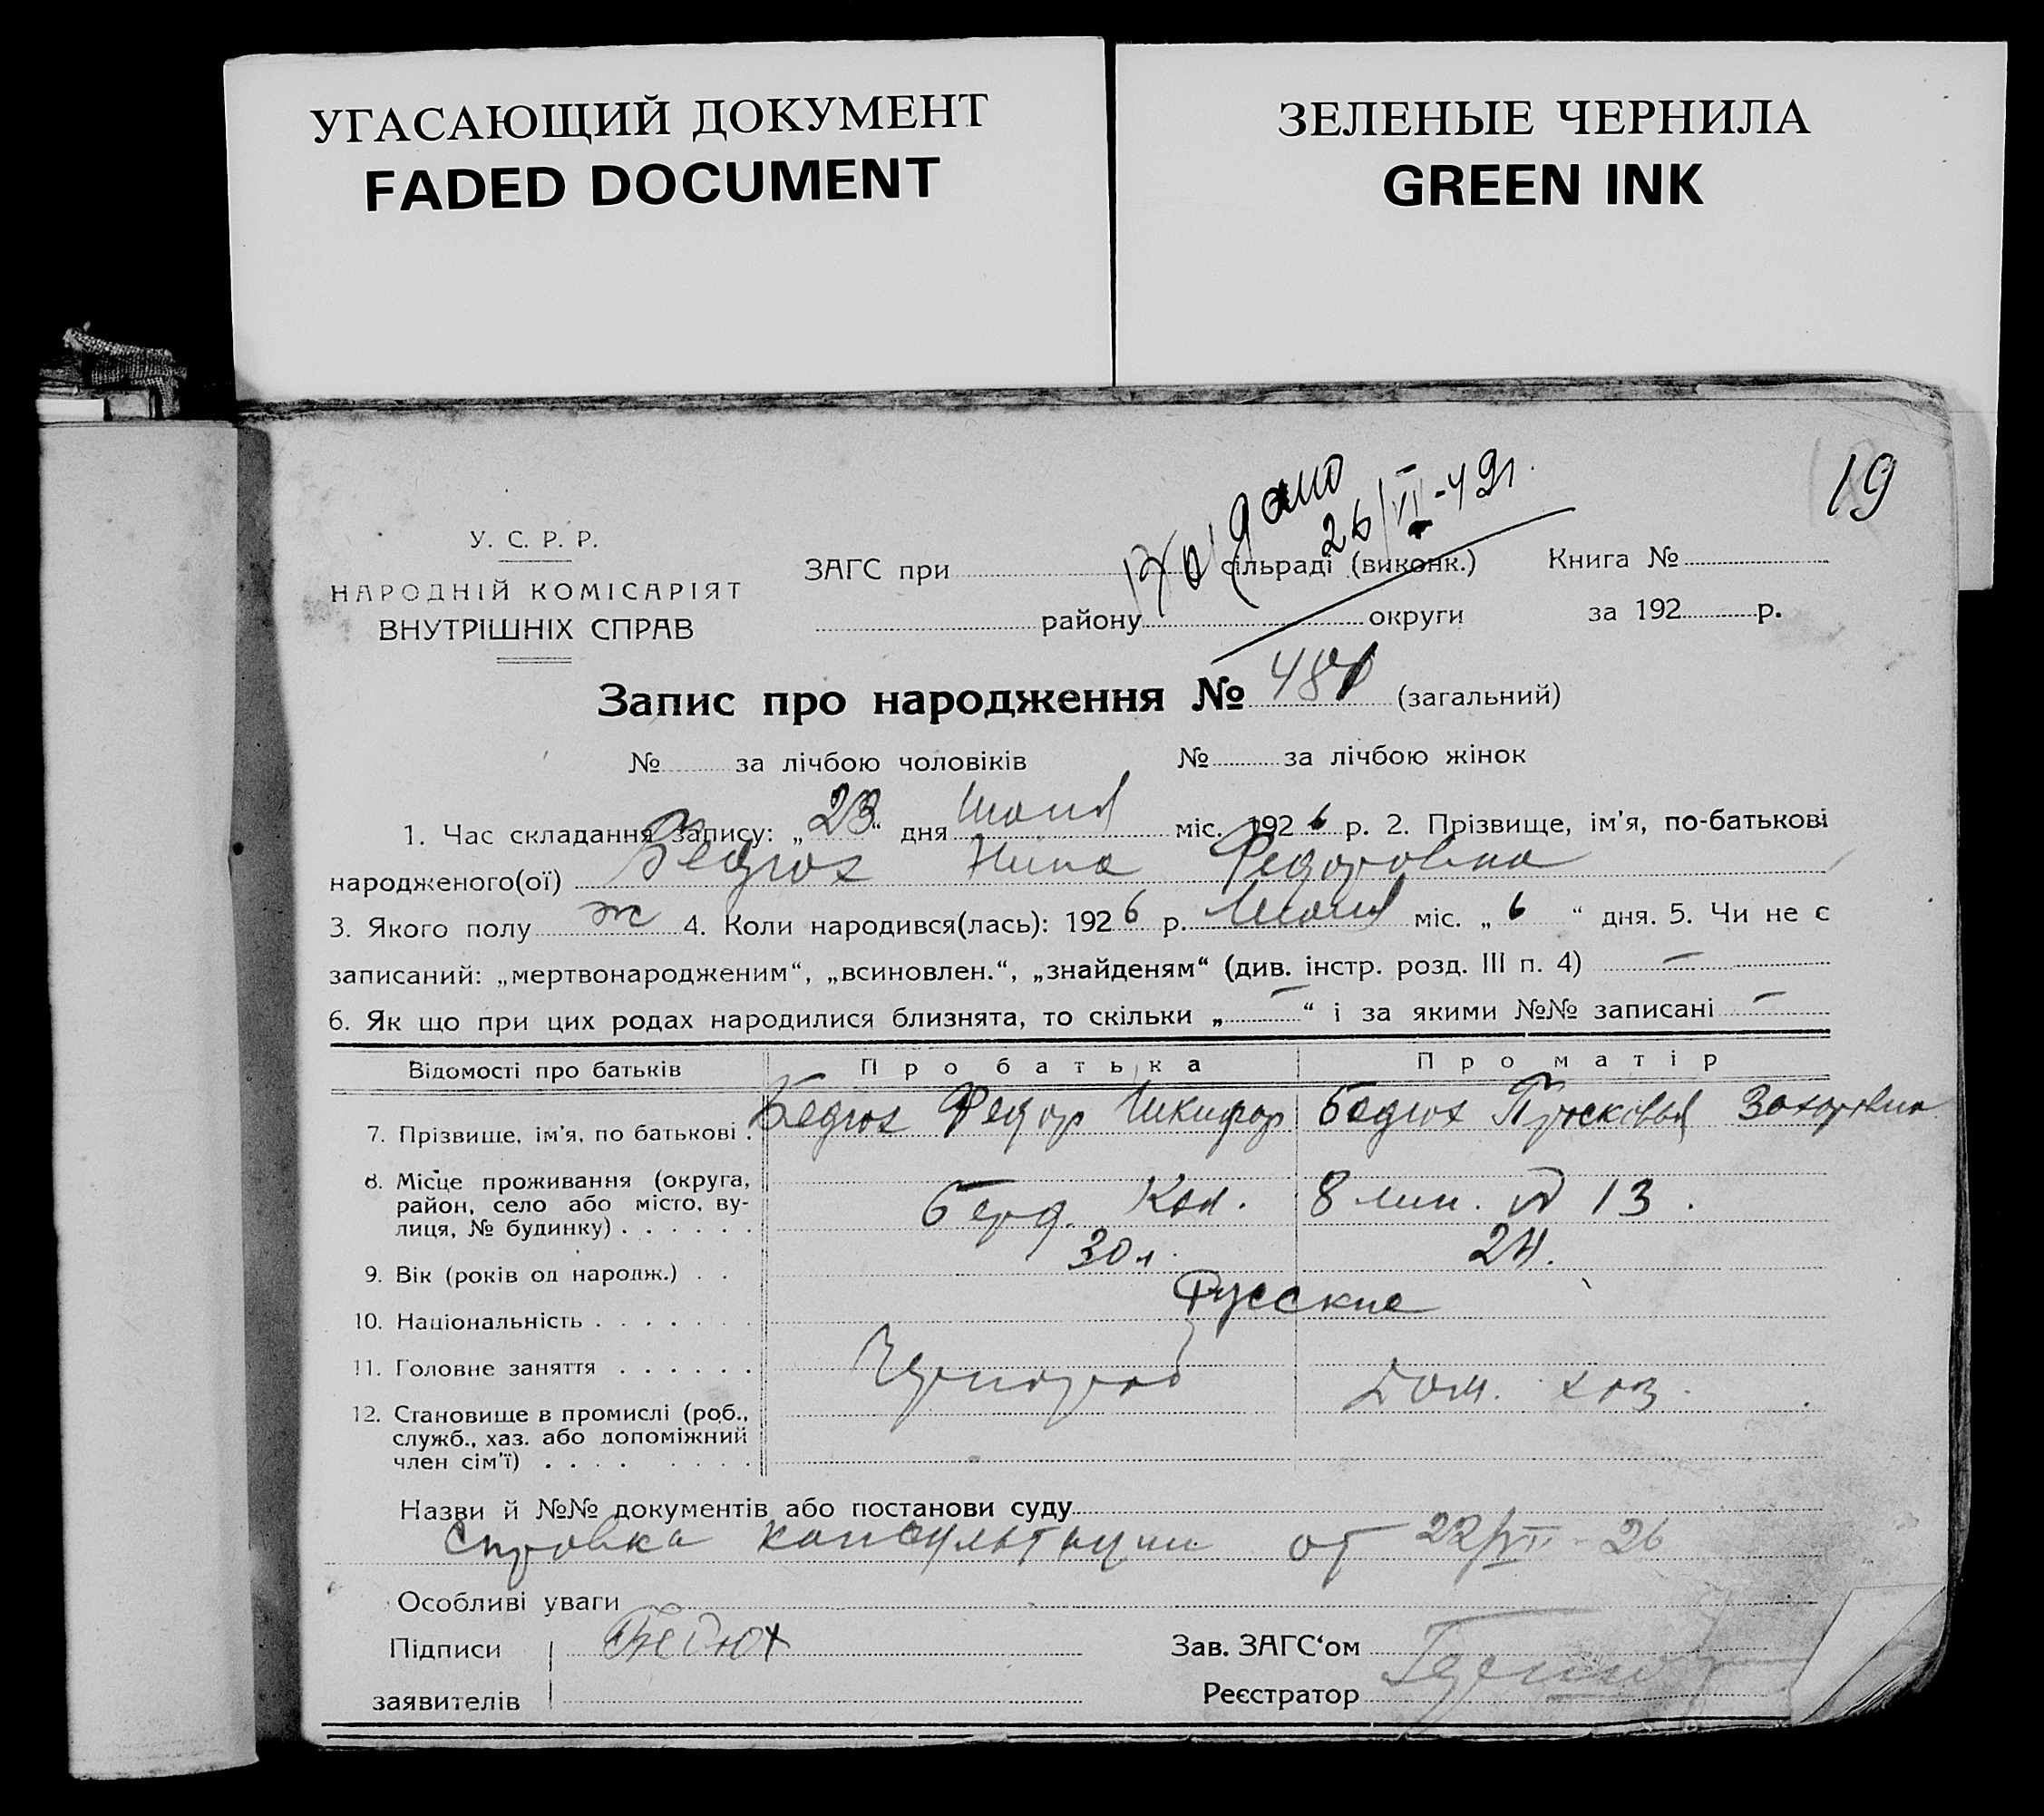 УГАСАЮЩИЙ ДОКУМЕНТ
FADED DOCUMENT
ЗЕЛЕНЫЕ ЧЕРНИЛА
GREEN INK
19
дано
26/VI-42г.
У. С. Р. Р.
НАРОДНІЙ КОМІСАРІЯТ
ВНУТРІШНІХ СПРАВ
ЗАГС при сільраді (виконк.) Книга №
району округи за 192 р.
Запис про народження № 481 (загальний)
№ за лічбою чоловіків № за лічбою жінок
1. Час складання запису: „23“ дня Июня міс. 1926 р. 2. Прізвище, ім'я, по-батькові
народженого(ої) Бедюх Нина Федоровна
3. Якого полу ж 4. Коли народився(лась): 1926 р. Июня міс. „6“ дня. 5. Чи не є
записаний: „мертвонародженим“, „всиновлен.“, „знайденям“ (див. інстр. розд. III п. 4) —
6. Як що при цих родах народилися близнята, то скільки „—“ і за якими №№ записані —
Відомості про батьків Про батька Про матір
7. Прізвище, ім'я, по батькові . Бедюх Федор Никифор Бедюх Просковья Захоровна
8. Місце проживання (округа,
район, село або місто, ву-
лиця, № будинку) . . . . . . Берд. Кол. 8 лин. № 13.
9. Вік (років од народж.) . . 30 л. 24.
10. Національність . . . . . . . Русские
11. Головне заняття . . . . . . Чернораб Дом. хоз.
12. Становище в промислі (роб.,
служб., хаз. або допоміжний
член сім'ї) . . . . . . . .
Назви й №№ документів або постанови суду
Справка консультации от 22/VI-26
Особливі уваги
Підписи Бедюх Зав. ЗАГС'ом
заявителів Реєстратор